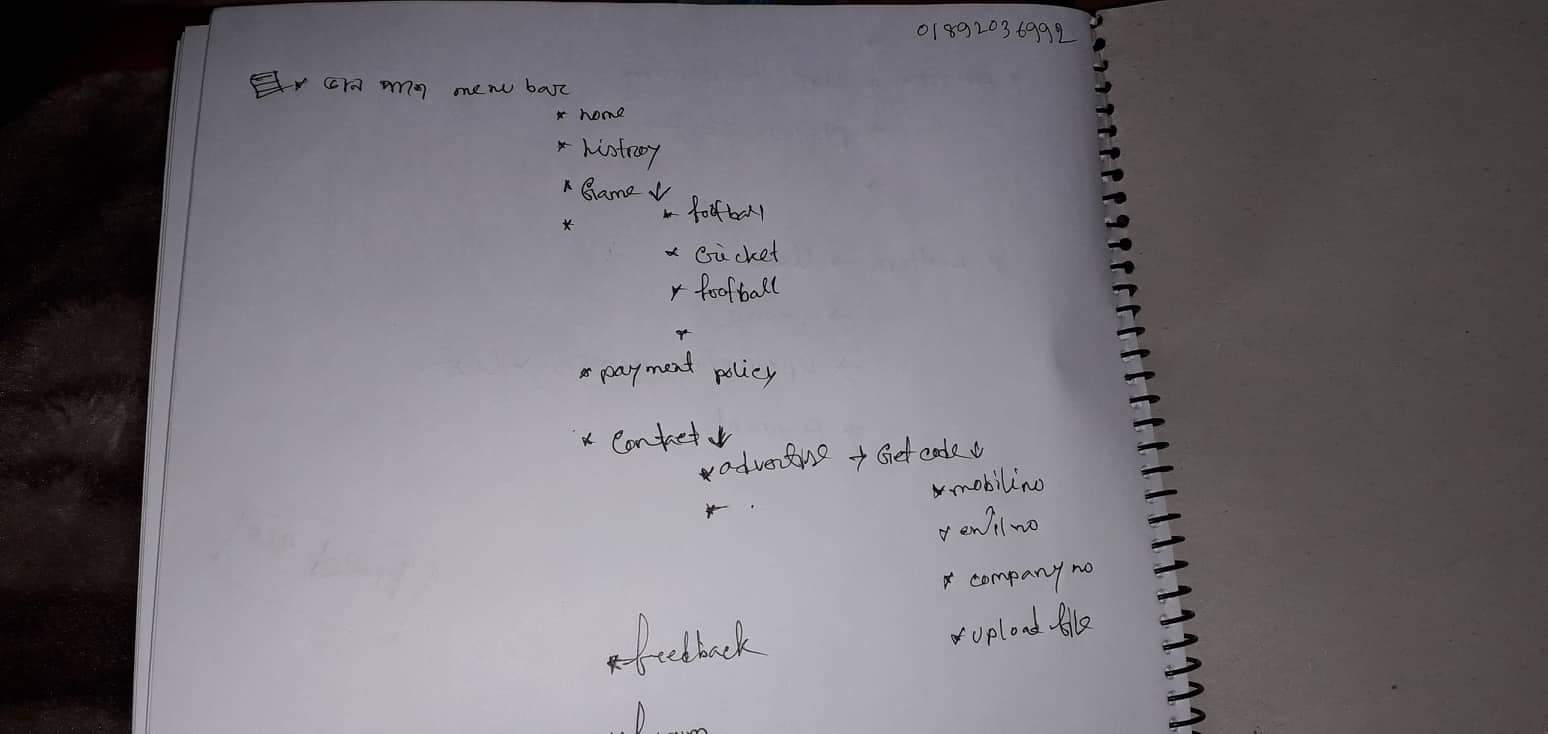 01892036992
menu bar
* home
* histroy
* Game ↓
* football
*
* Cricket
* football
*
* payment policy
* Contact ↓
* advertise → Get code ↓
* mobili no
*
* emil no
* company no
* upload file
* feedback